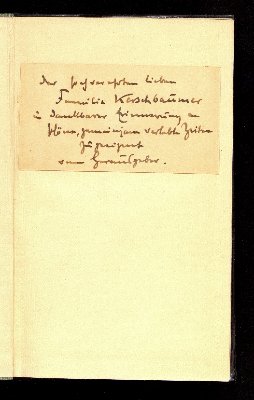 Der hochverehrten lieben
Familie Kerschbaumer
in dankbarer Erinnerung an
schöne, gemeinsam verlebte Zeiten
zugeeignet
vom Herausgeber.